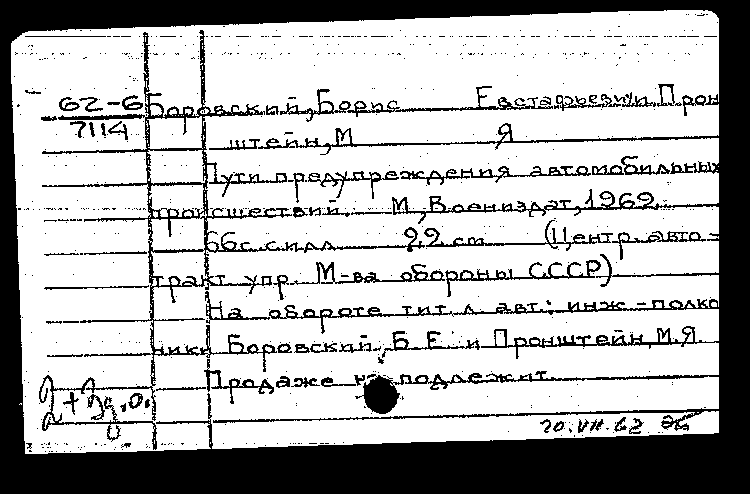 62-6 Боровский, Борис Евстафьевич и Прон
7114 штейн, М Я
Пути предупреждения автомобильных
происшествий. М, Воениздат, 1962.
66с с илл. 22 см (Центр. авто-
тракт упр. М-ва обороны СССР)
На обороте тит. л. авт.: инж-полко
ники Боровский, Б Е и Пронштейн, М.Я.
Продаже не подлежит.
2+3д.о.
20.VII.62